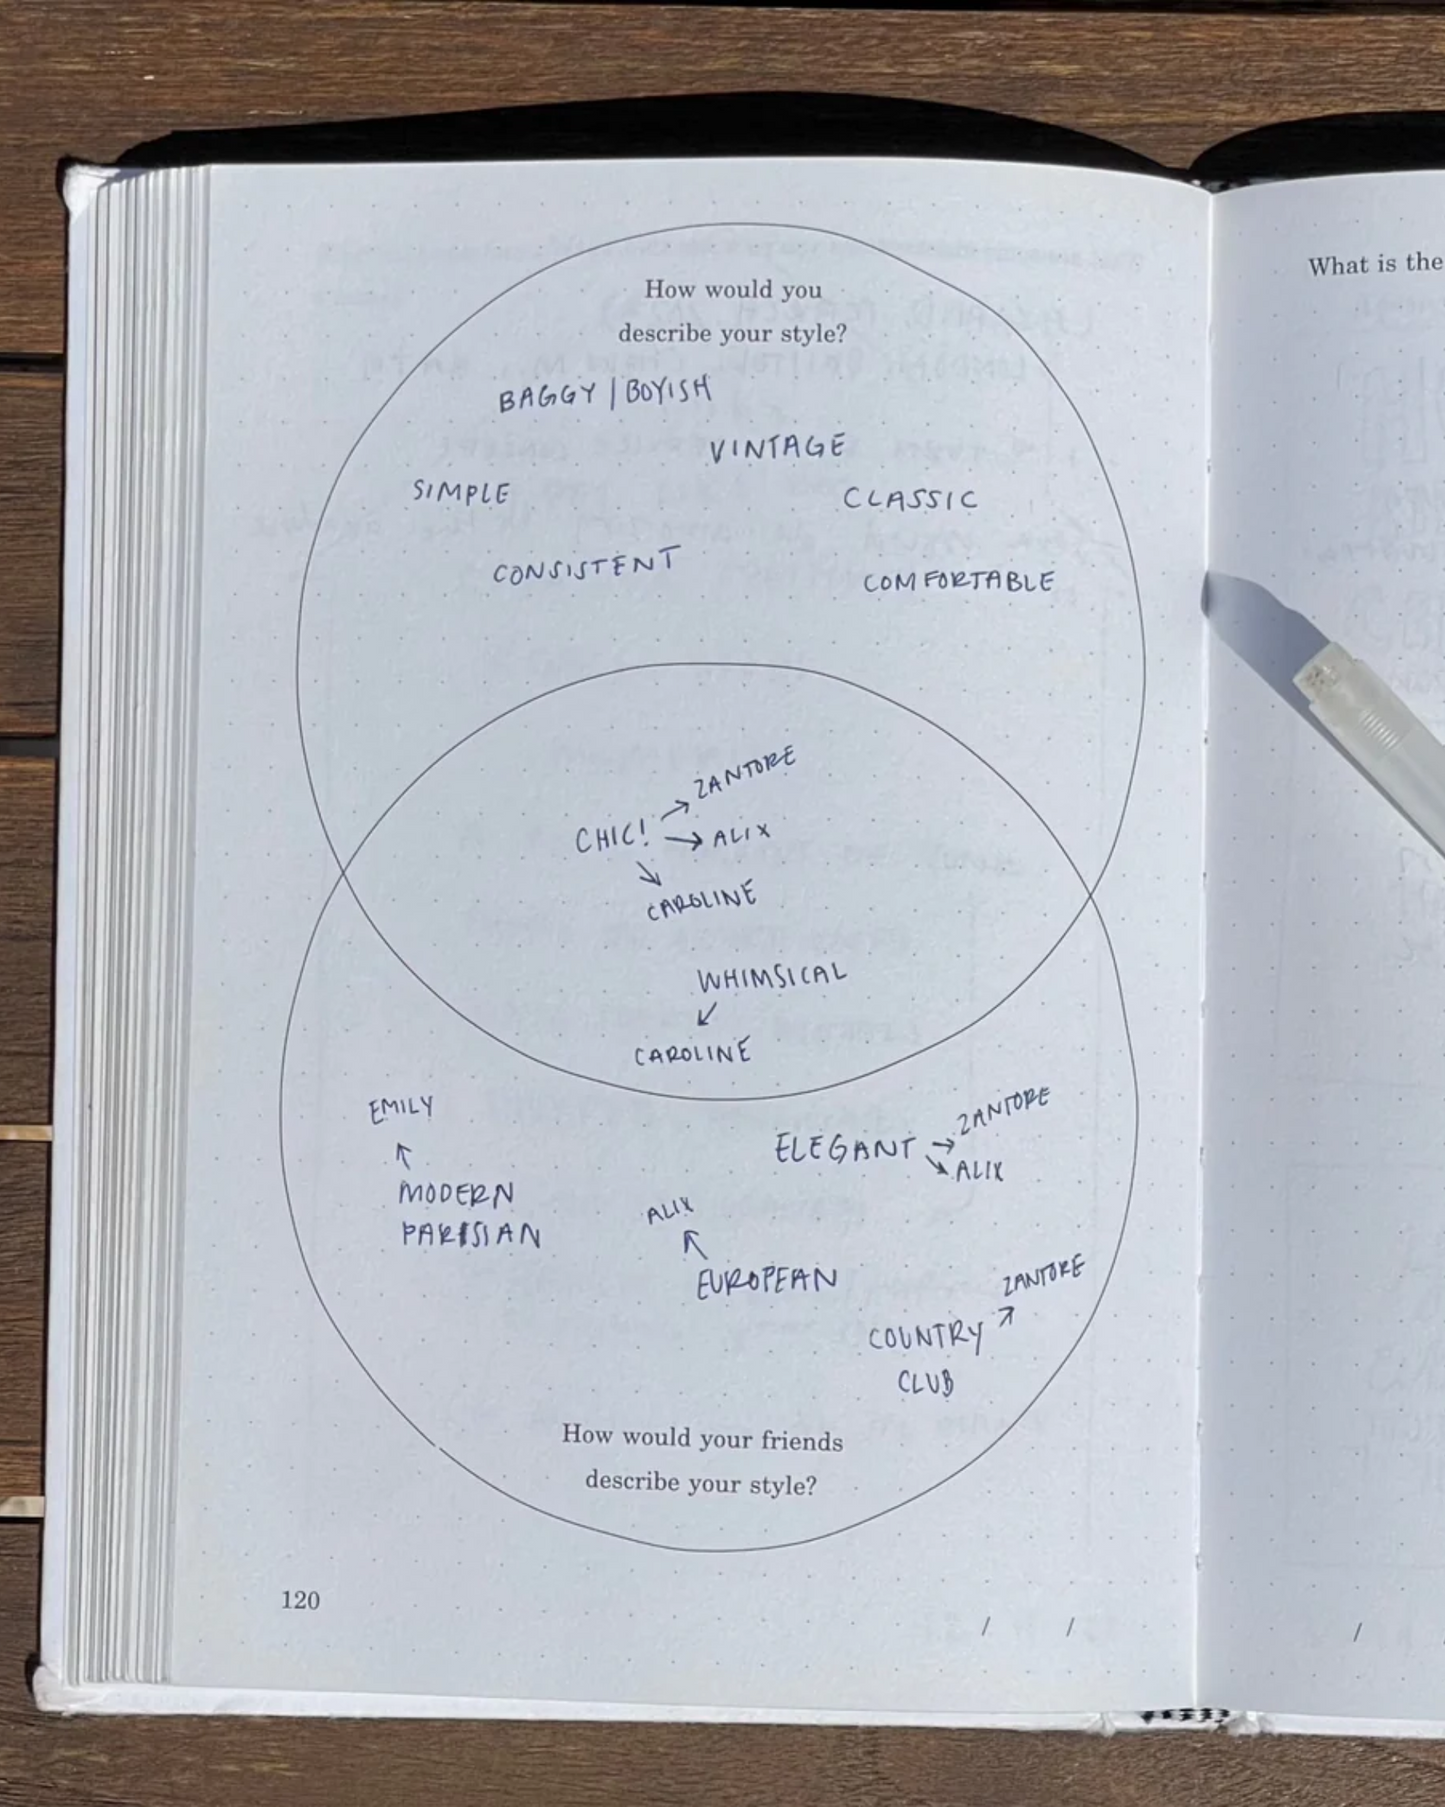 How would you
describe your style?
BAGGY / BOYISH
VINTAGE
SIMPLE
CLASSIC
CONSISTENT
COMFORTABLE
ZANTORE
CHIC! → → ALIX
↘
CAROLINE
WHIMSICAL
↙
CAROLINE
EMILY
↖
MODERN
PARISIAN
ZANTORE
ELEGANT → ↘ ALIX
ALIX
↖
EUROPEAN
ZANTORE
COUNTRY ↗
CLUB
How would your friends
describe your style?
120
/ /
What is the
/